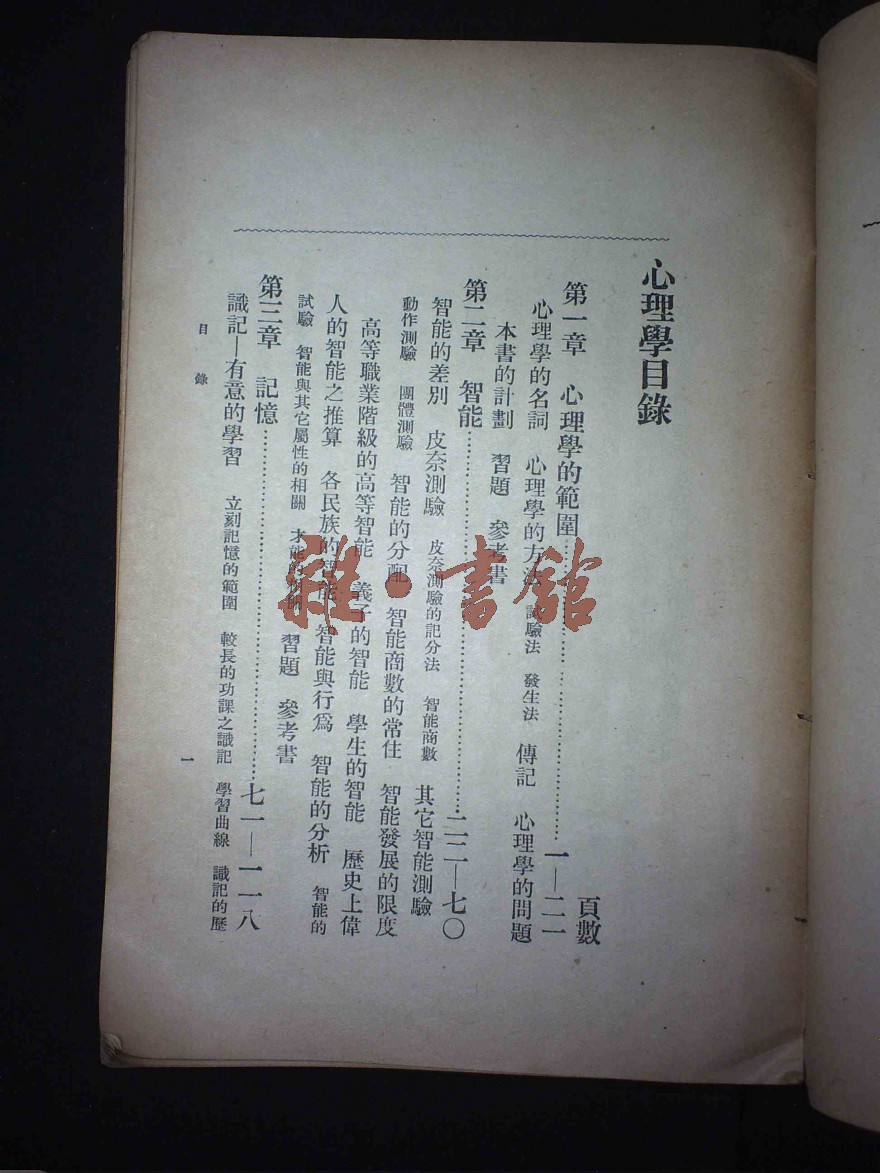 心理學目錄
頁數
第一章　心理學的範圍……一—二一
心理學的名詞　心理學的方法　試驗法　發生法　傳記　心理學的問題
本書的計劃　習題　參考書
第二章　智能……二二—七〇
智能的差別　皮奈測驗　皮奈測驗的記分法　智能商數　其它智能測驗
動作測驗　團體測驗　智能的分配　智能商數的常住　智能發展的限度
高等職業階級的高等智能　義子的智能　學生的智能　歷史上偉
人的智能之推算　各民族的智能　智能與行爲　智能的分析　智能的
試驗　智能與其它屬性的相關　才能　習題　參考書
第三章　記憶……七一—一一八
識記—有意的學習　立刻記憶的範圍　較長的功課之識記　學習曲線　識記的歷
目錄
一
雜·書館